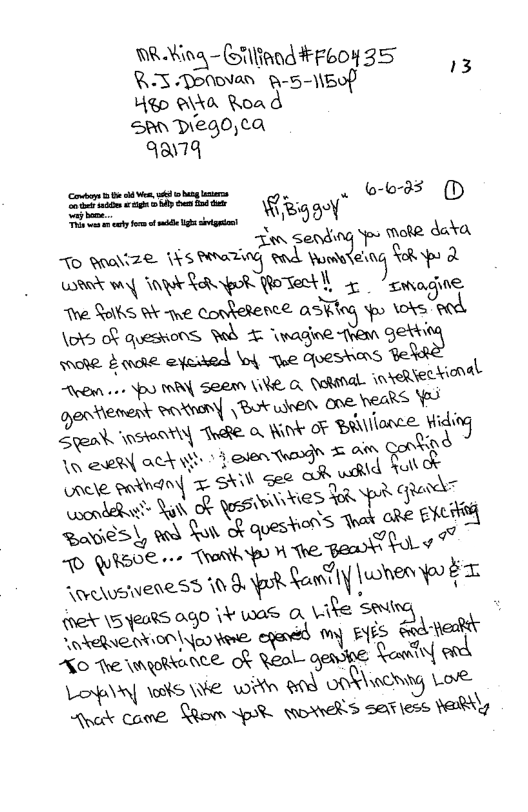 MR. King-Gilliand #F60435
13
R.J. Donovan A-5-115up
480 Alta Road
SAN Diego, ca
92179
Cowboys in the old West, used to hang lanterns
on their saddles at night to help them find their
way home...
This was an early form of saddle light navigation!
6-6-23 1
Hi, "Big guy"
I'm sending you more data
TO Analize it's Amazing And Humbleing for you 2
want my input for your project!! I Imagine
The folks At The conference asking you lots And
lots of questions And I imagine them getting
more & more excited by The questions Before
Them... you may seem like a normal interlectional
gentlement Anthony, But when one hears you
speak instantly There a Hint of Brilliance Hiding
in every act!!!! even Though I am confind
uncle Anthony I still see our world full of
wonder!!! full of possibilities for your Grand-
Babie's! And full of question's That are Exciting
TO pursue... Thank you 4 The Beautiful
inclusiveness in 2 your family! when you & I
met 15 years ago it was a Life saving
intervention! you Have opened my EYES And Heart
To The importance of Real genuine family And
Loyalty looks like with And unflinching Love
That came from your mother's selfless Heart!